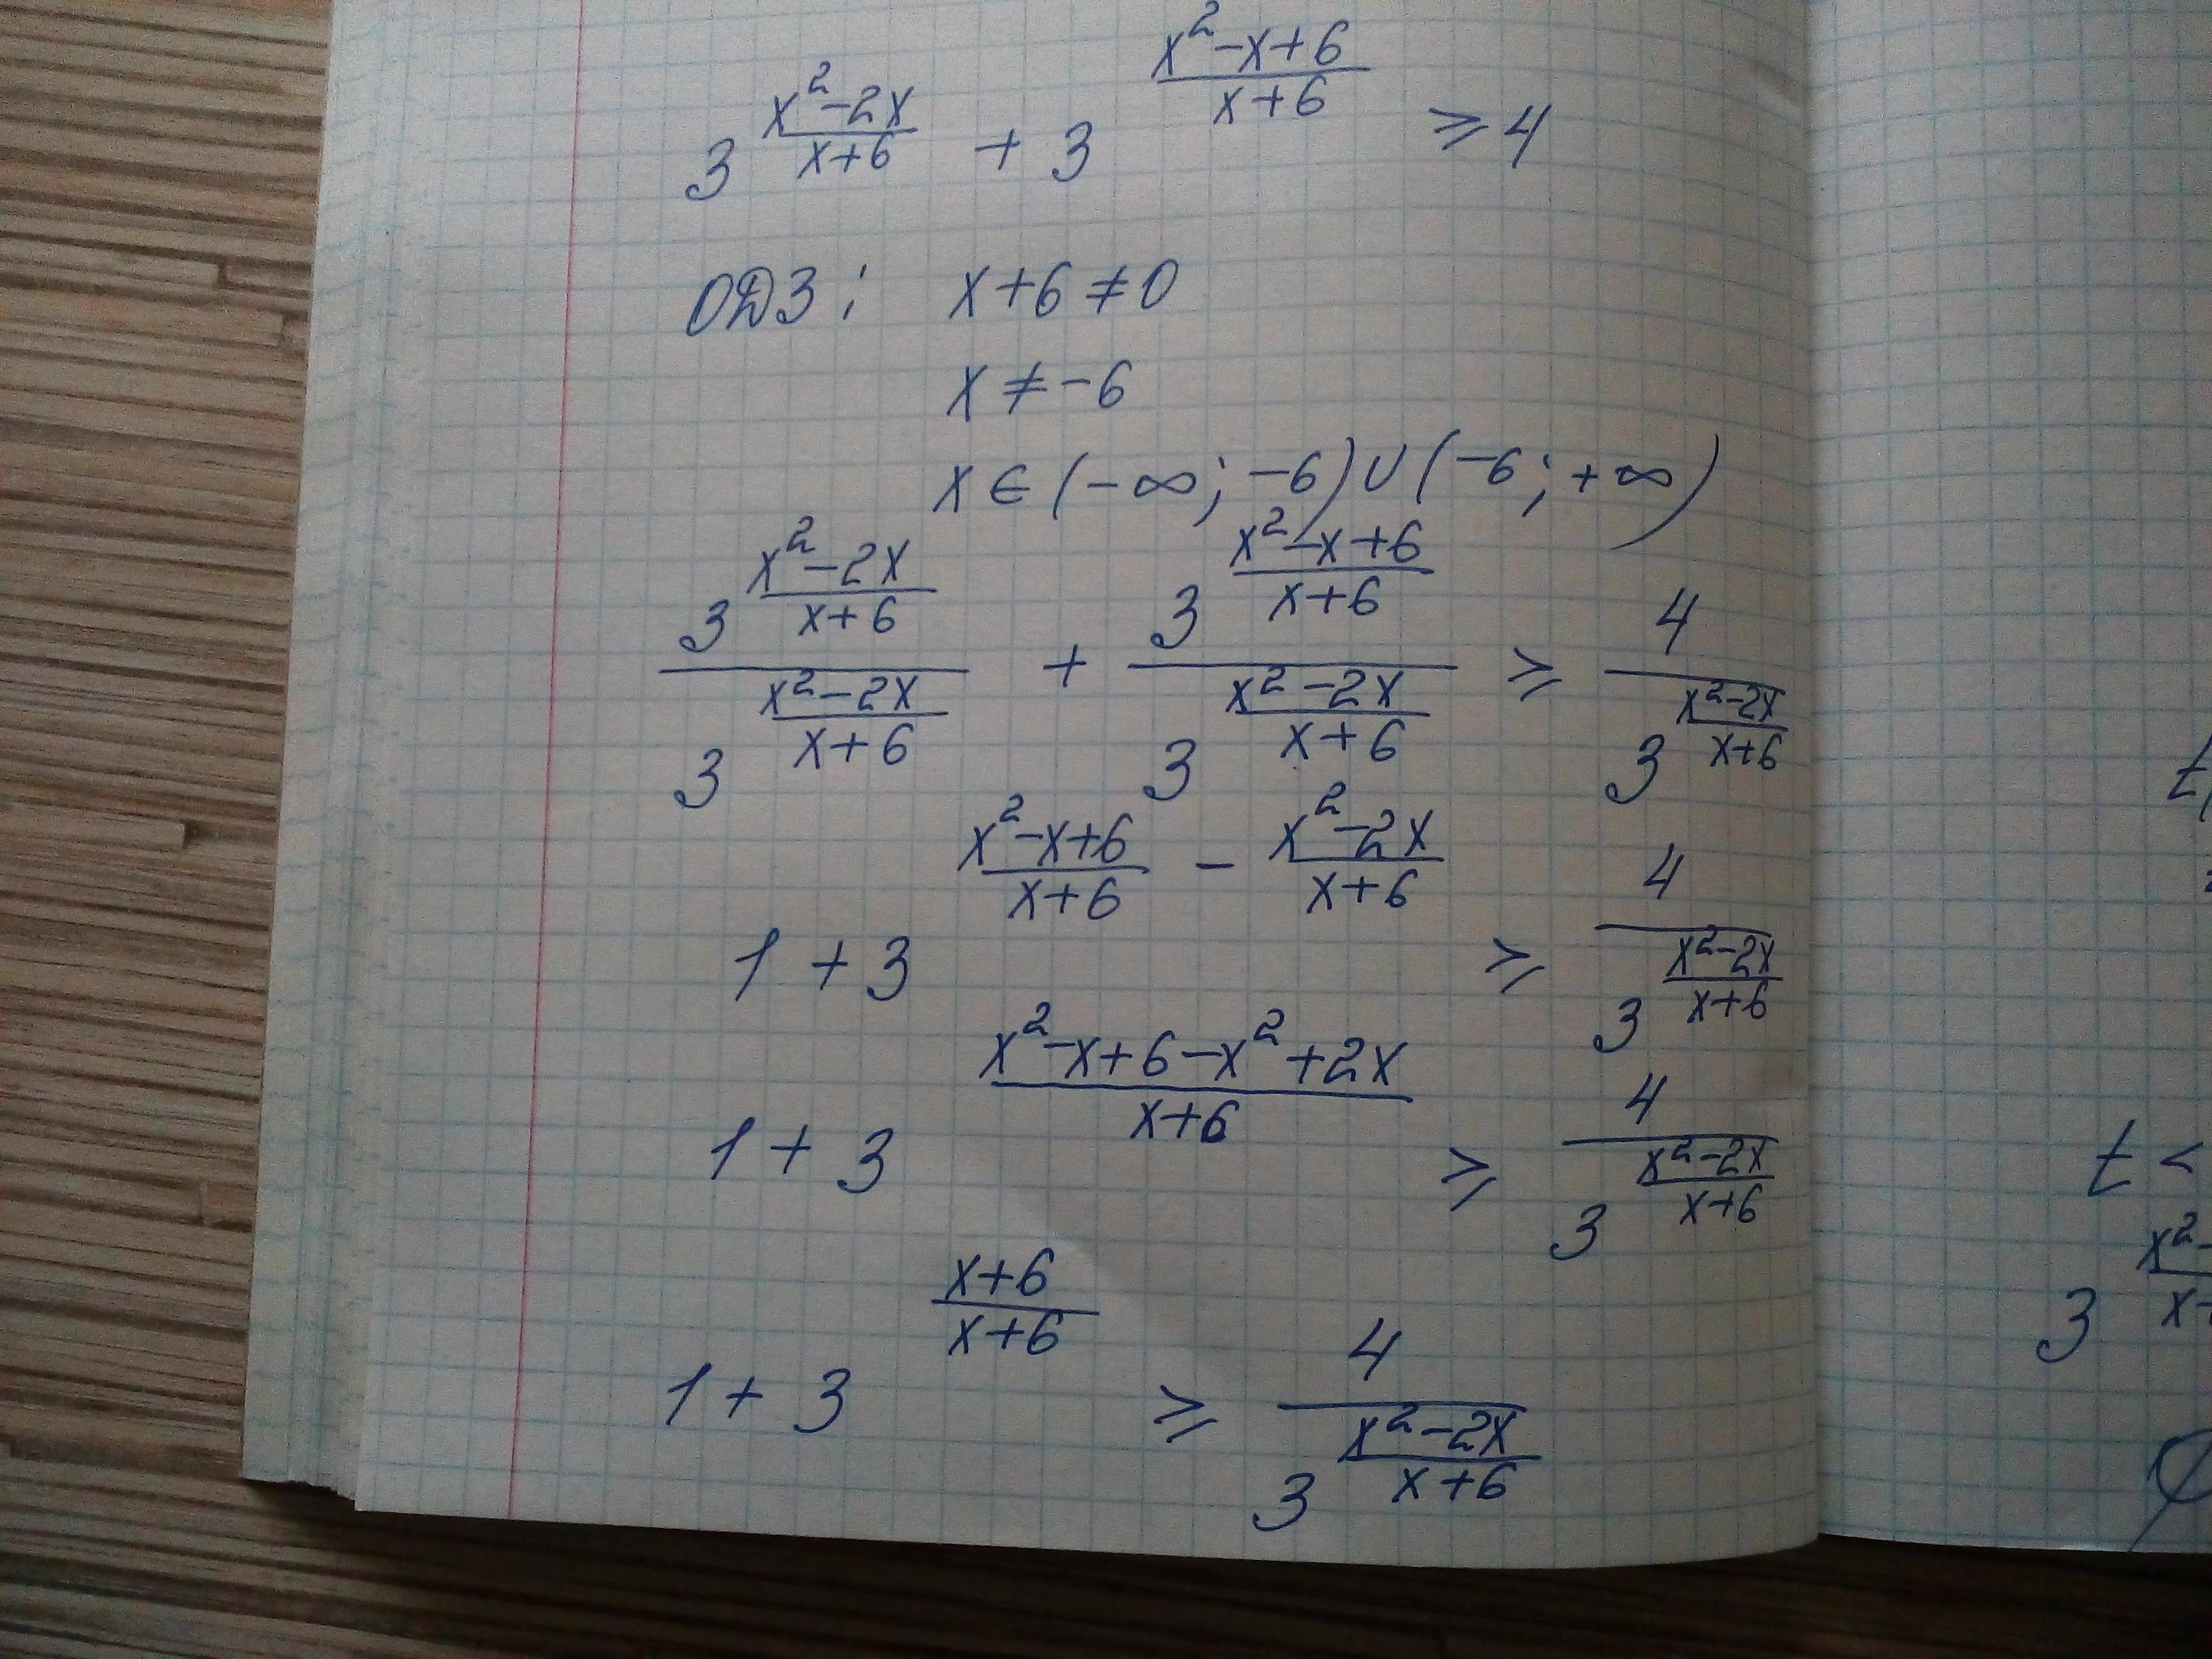 3^((x²-2x)/(x+6)) + 3^((x²-x+6)/(x+6)) ⩾ 4
ОДЗ: x+6≠0
x≠-6
x∈(-∞;-6)∪(-6;+∞)
3^((x²-2x)/(x+6)) / 3^((x²-2x)/(x+6)) + 3^((x²-x+6)/(x+6)) / 3^((x²-2x)/(x+6)) ⩾ 4 / 3^((x²-2x)/(x+6))
1 + 3^((x²-x+6)/(x+6) - (x²-2x)/(x+6)) ⩾ 4 / 3^((x²-2x)/(x+6))
1 + 3^((x²-x+6-x²+2x)/(x+6)) ⩾ 4 / 3^((x²-2x)/(x+6))
1 + 3^((x+6)/(x+6)) ⩾ 4 / 3^((x²-2x)/(x+6))
t <